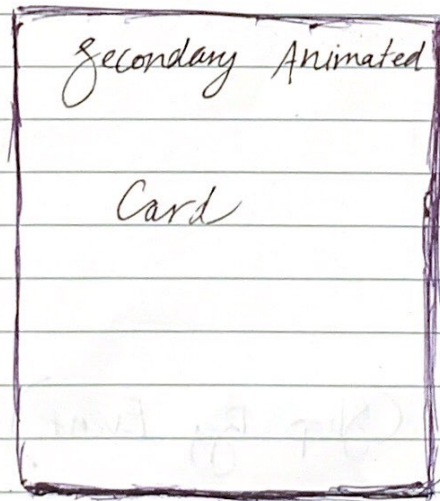 Secondary Animated
Card